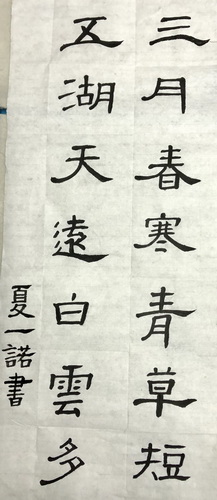 三月春寒青草短
五湖天遠白雲多
夏一諾書